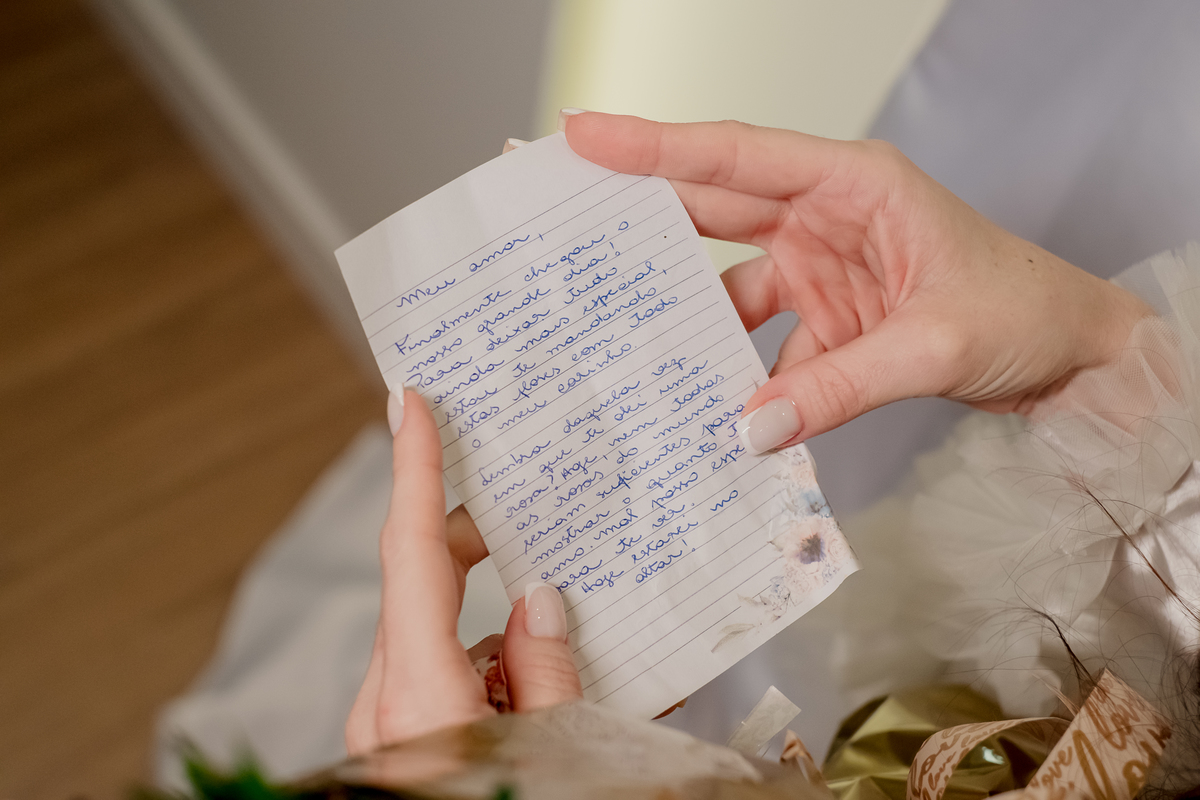 Meu amor,
Finalmente chegou o
nosso grande dia!
Para deixar tudo
ainda mais especial,
estou te mandando
estas flores com todo
o meu carinho.
Lembra daquela vez
em que te dei uma
rosa? Hoje, nem todas
as rosas do mundo
seriam suficientes para
mostrar o quanto T
amo. mal posso espe
para te ver.
Hoje estarei no
altar!
love